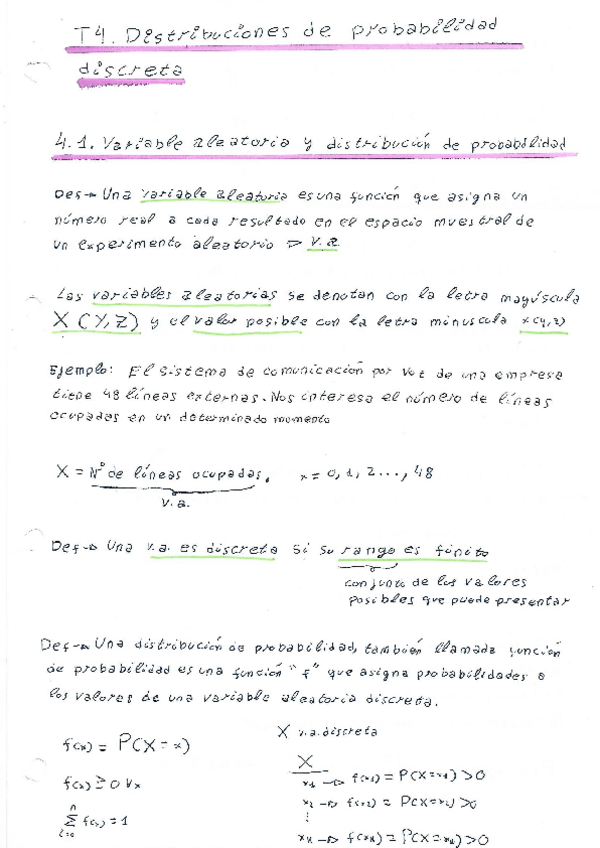 T4. Distribuciones de probabilidad
discreta
4.1. Variable aleatoria y distribución de probabilidad
Def→ Una variable aleatoria es una función que asigna un
número real a cada resultado en el espacio muestral de
un experimento aleatorio ⇒ v.a.
Las variables aleatorias se denotan con la letra mayúscula
X (Y,Z) y el valor posible con la letra minuscula x(y,z)
Ejemplo: El sistema de comunicación por voz de una empresa
tiene 48 líneas externas. Nos interesa el número de líneas
ocupadas en un determinado momento
X = Nº de líneas ocupadas, x = 0, 1, 2..., 48
v.a.
Def→ Una v.a. es discreta si su rango es finito
conjunto de los valores
posibles que puede presentar
Def→ Una distribución de probabilidad, también llamada función
de probabilidad es una función "f" que asigna probabilidades a
los valores de una variable aleatoria discreta.
X v.a. discreta
f(x) = P(X=x)
X
x1 → f(x1) = P(X=x1) >0
f(x) ≥ 0 ∀x
x2 → f(x2) = P(X=x2) >0
⋮
n
Σ f(x) = 1
i=0
xn → f(xn) = P(X=xn) >0